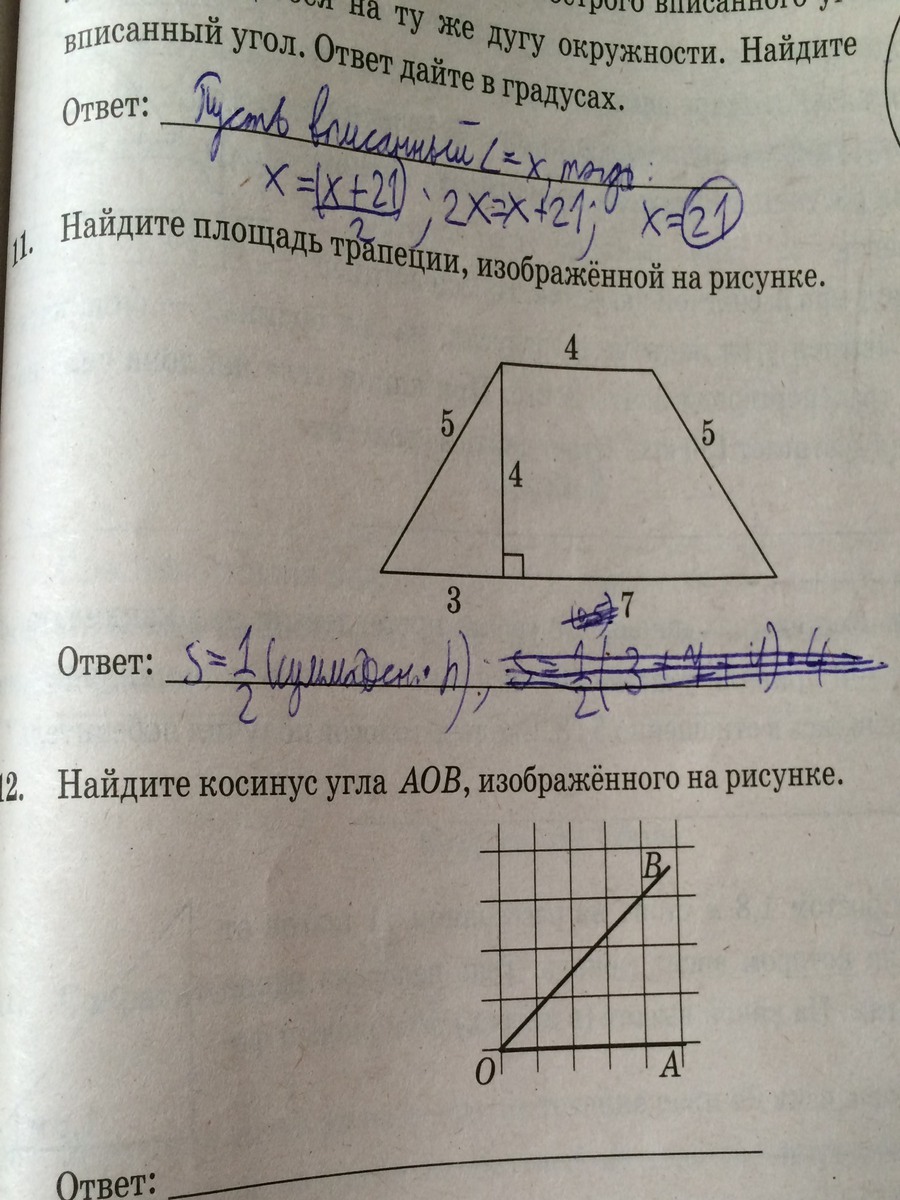 на ту же дугу окружности. Найдите
вписанный угол. Ответ дайте в градусах.
Ответ: Пусть вписанный ∠=x, тогда:
x=(x+21)/2; 2x=x+21; x=21
11. Найдите площадь трапеции, изображённой на рисунке.
4
5
5
4
3
7
Ответ: S=1/2(сумма осн.·h);
12. Найдите косинус угла AOB, изображённого на рисунке.
B
O
A
Ответ: